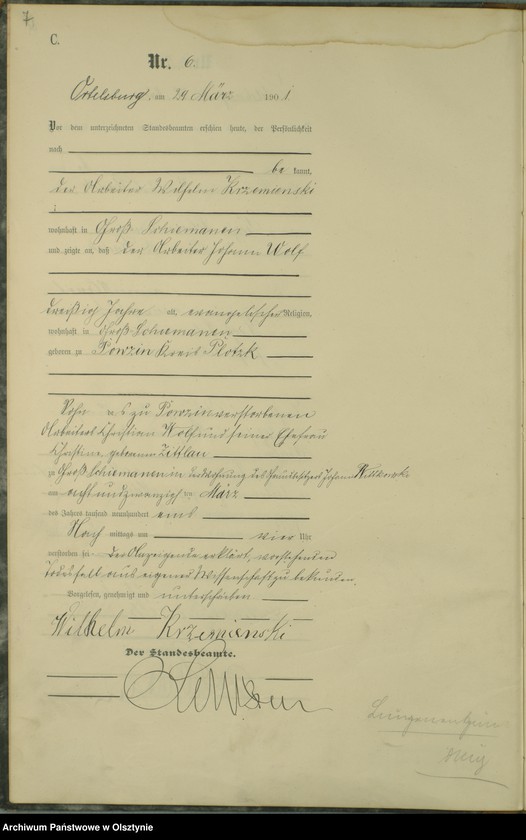 7.
C.
Nr. 6
Ortelsburg, am 29 März 1901
Vor dem unterzeichneten Standesbeamten erschien heute, der Persönlichkeit
nach
be kannt,
der Arbeiter Wilhelm Krzemienski
wohnhaft in Groß Schiemanen
und zeigte an, daß der Arbeiter Johann Wolf
dreißig Jahre alt, evangelischer Religion,
wohnhaft in Groß Schiemanen
geboren zu Kreis Plotzk
Sohn des zu verstorbenen
Arbeiters Christian Wolf und seiner Ehefrau
Christine geborenen Zittlau
zu Groß Schiemanen in der Wohnung des Johann
am achtundzwanzigsten März
des Jahres tausend neunhundert eins
Nach mittags um vier Uhr
verstorben sei. Der Anzeigende erklärt, vorstehenden
Todesfall aus eigener Wissenschaft zu bekunden.
Vorgelesen, genehmigt und unterschrieben
Wilhelm Krzemienski
Der Standesbeamte.
Archiwum Państwowe w Olsztynie